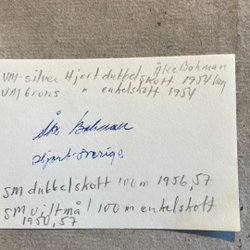 VM-silver Hjort dubbelskott 1954 lag Åke Bohman
VM brons " enkelskott 1954
Åke Bohman
Hjort-Sverige
SM dubbelskott 100 m 1956, 57
SM viltmål 100 m enkelskott
1950, 57